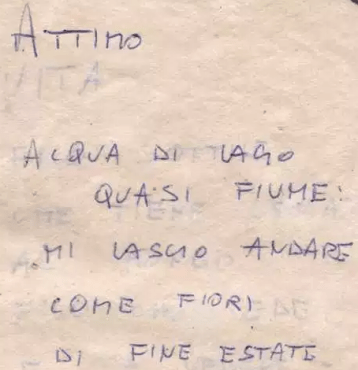 ATTIMO
VITA
ACQUA DI LAGO
QUASI FIUME:
MI LASCIO ANDARE
COME FIORI
DI FINE ESTATE